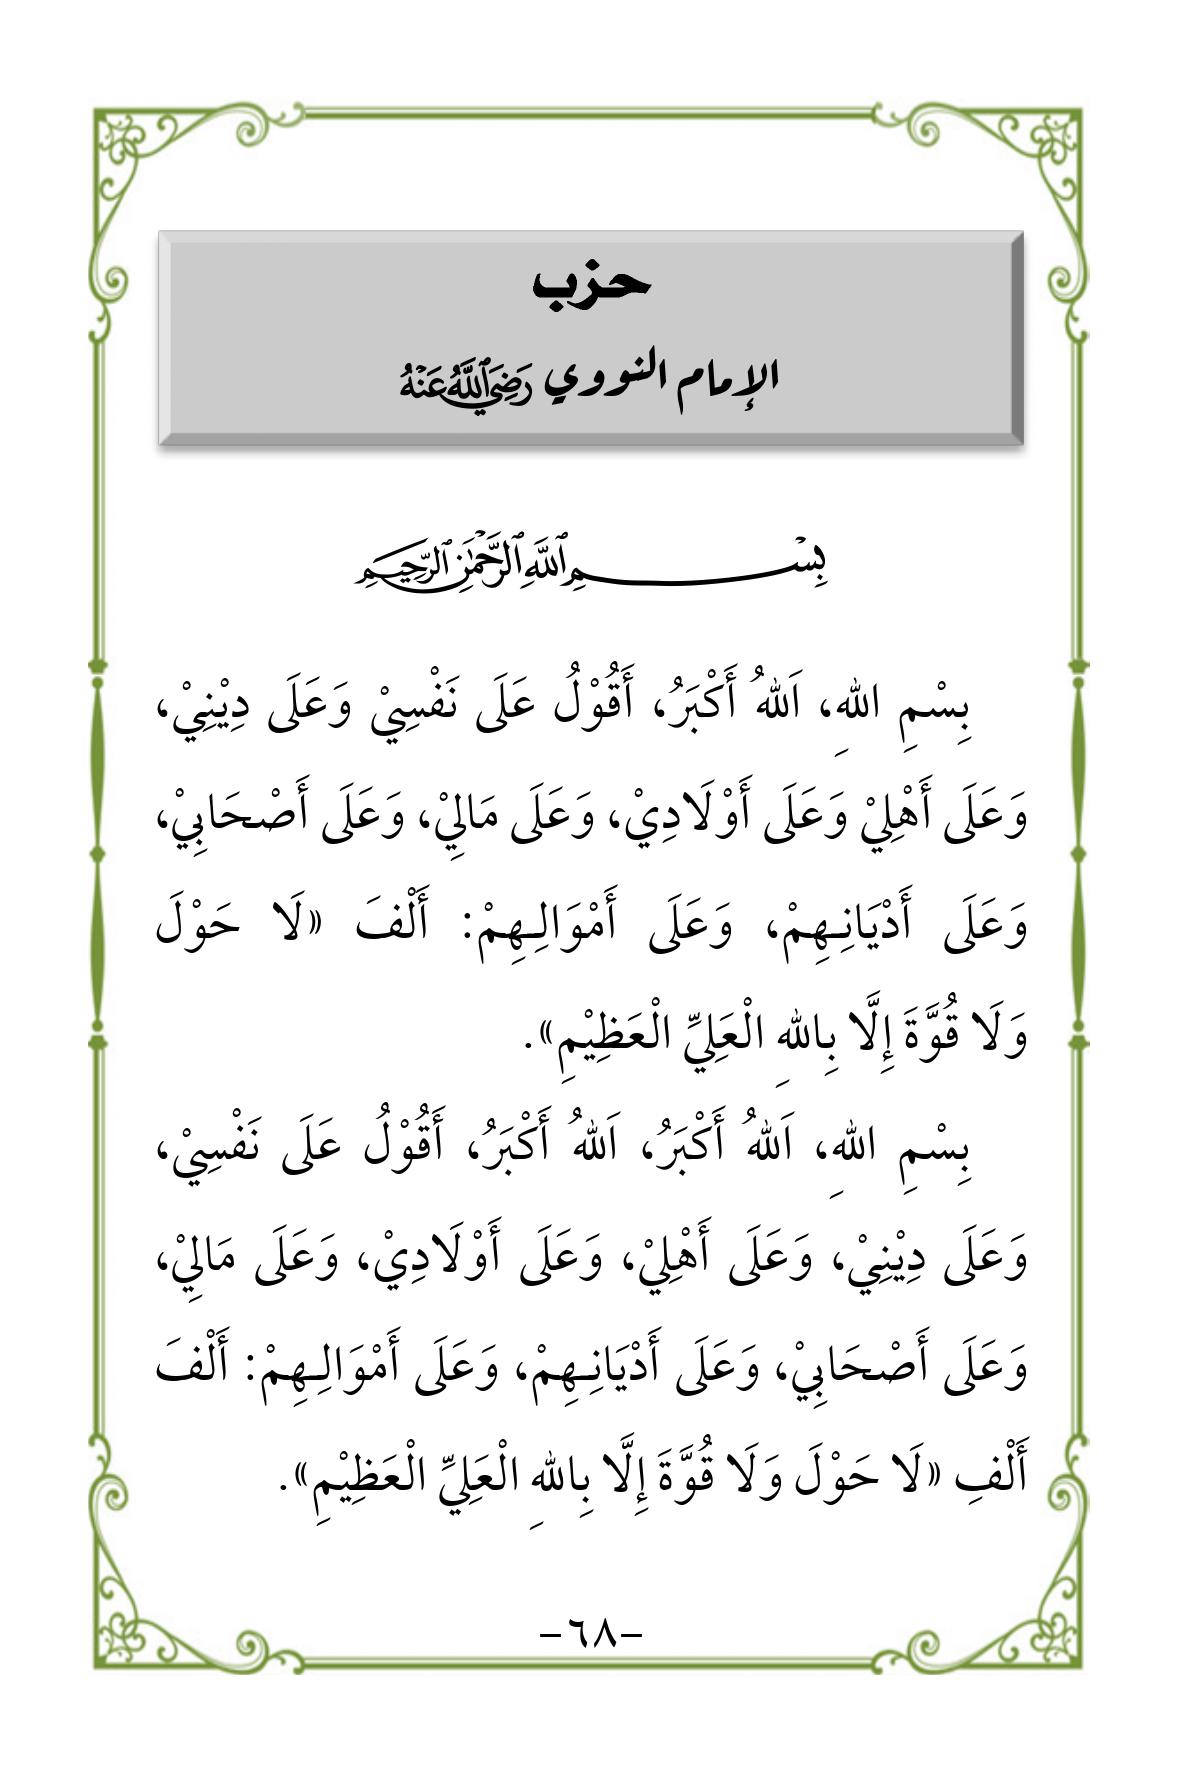 حزب
الإمام النووي رَضِيَ ٱللَّهُ عَنْهُ
بِسْمِ ٱللَّهِ ٱلرَّحْمَٰنِ ٱلرَّحِيمِ
بِسْمِ اللهِ، اَللهُ أَكْبَرُ، أَقُوْلُ عَلَى نَفْسِيْ وَعَلَى دِيْنِيْ،
وَعَلَى أَهْلِيْ وَعَلَى أَوْلَادِيْ، وَعَلَى مَالِيْ، وَعَلَى أَصْحَابِيْ،
وَعَلَى أَدْيَانِـهِمْ، وَعَلَى أَمْوَالِـهِمْ: أَلْفَ «لَا حَوْلَ
وَلَا قُوَّةَ إِلَّا بِاللهِ الْعَلِيِّ الْعَظِيْمِ».
بِسْمِ اللهِ، اَللهُ أَكْبَرُ، اَللهُ أَكْبَرُ، أَقُوْلُ عَلَى نَفْسِيْ،
وَعَلَى دِيْنِيْ، وَعَلَى أَهْلِيْ، وَعَلَى أَوْلَادِيْ، وَعَلَى مَالِيْ،
وَعَلَى أَصْحَابِيْ، وَعَلَى أَدْيَانِـهِمْ، وَعَلَى أَمْوَالِـهِمْ: أَلْفَ
أَلْفِ «لَا حَوْلَ وَلَا قُوَّةَ إِلَّا بِاللهِ الْعَلِيِّ الْعَظِيْمِ».
-٦٨-